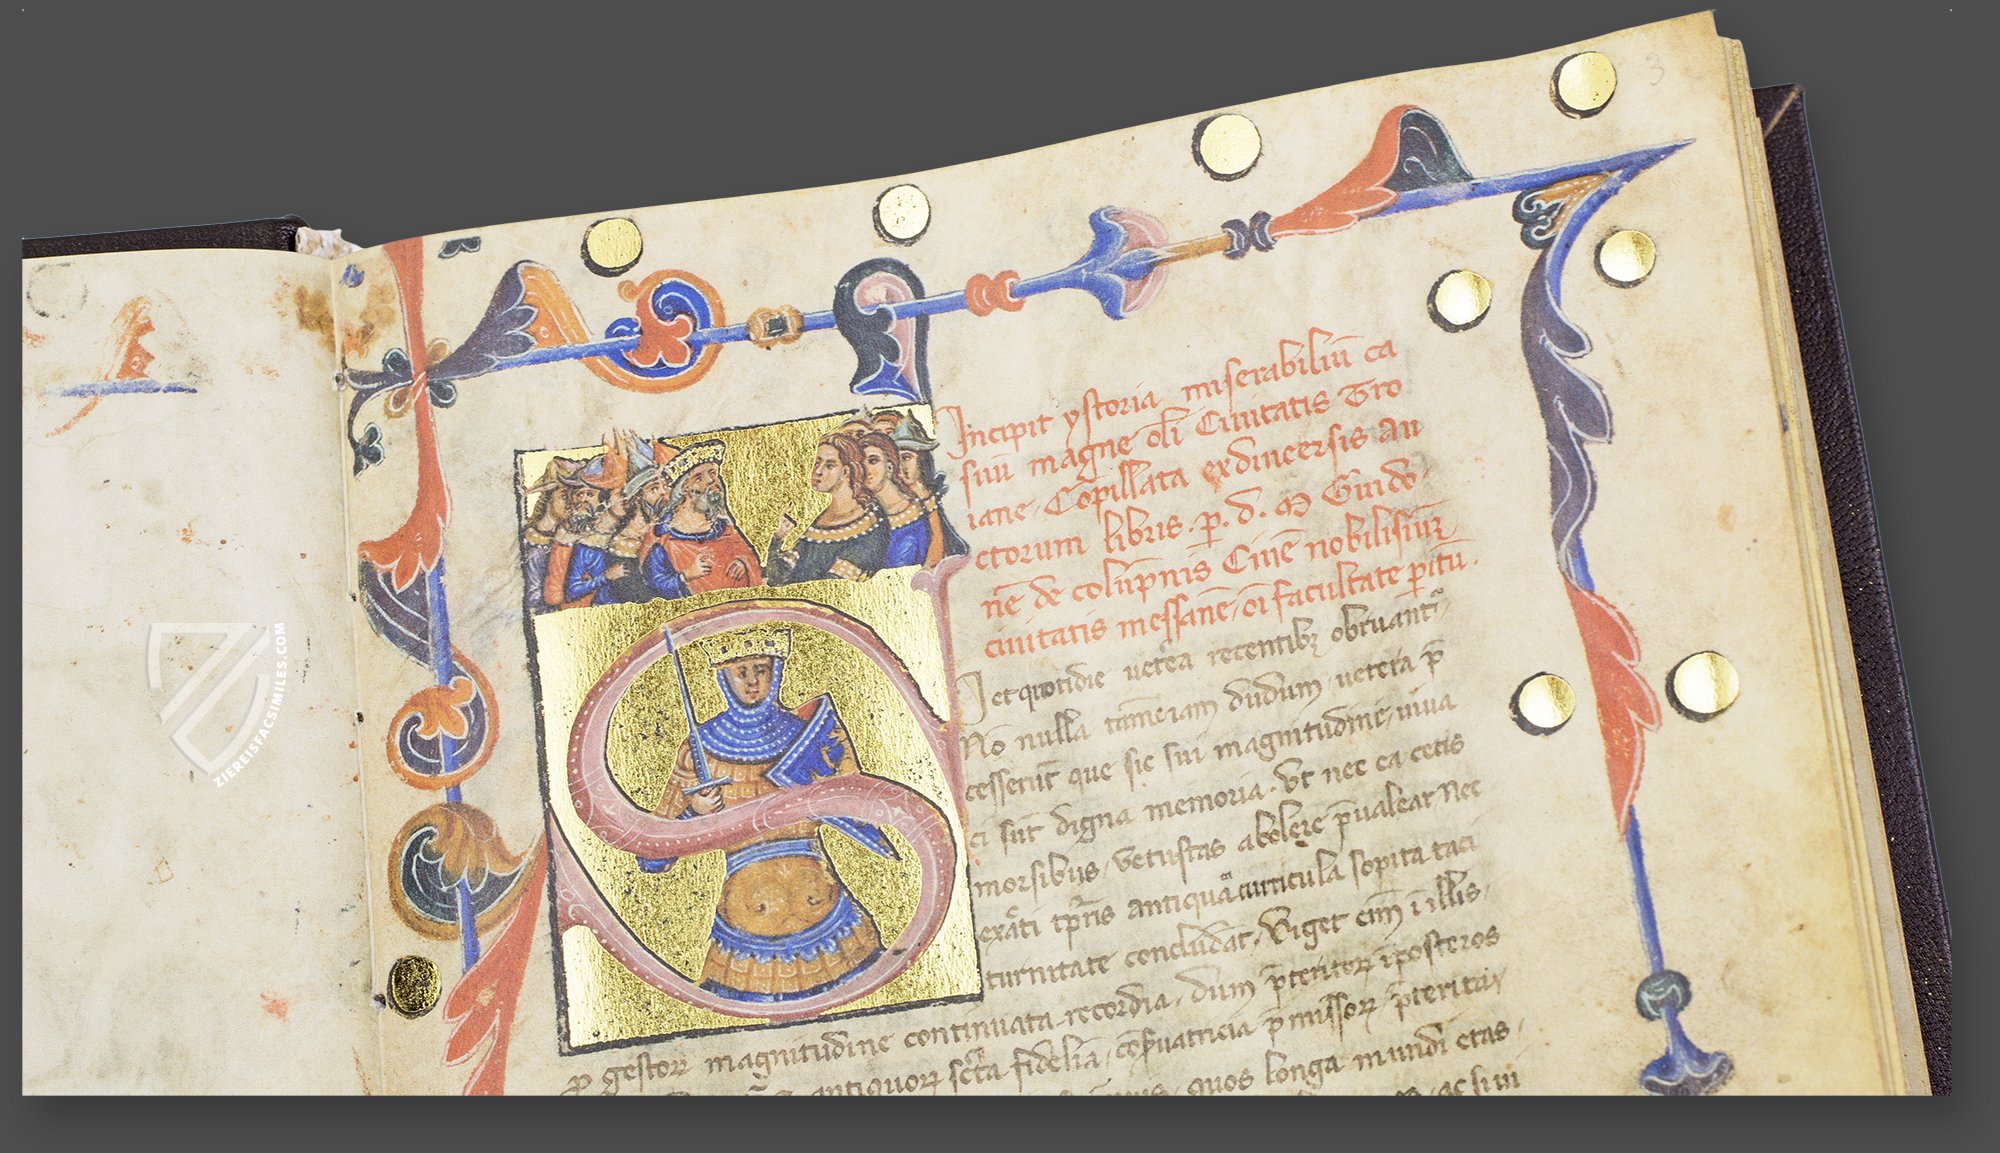 3
Incipit ystoria miserabiliū ca
suū magne oli Ciuitatis Tro
iane. Cōpillata ex diuersis au
ctorum libris. p. d. M Guido
nē de colūpnis Ciuē nobilisiūꝝ
ciuitatis messane, oī facultate ꝑitū.
I et quotidie uetera recentibꝫ obruant᷑,
Nō nulla tamē iam dudum uetera p̄
cesserūt que sic sui magnitudine, uiua
ci sūt digna memoria. Vt nec ea cecis
morsibus, vetustas abolere p̄ualeat Nec
exāti tp̄ris antiqua curricula sopita taci
turnitate concludāt. Viget eīm ī illis,
ꝓ gestoꝝ magnitudine continuata recordia, dum p̄teritoꝝ ī posteros
antiquoꝝ sc̄ta fidelia, cōseruatricia p̄missoꝝ p̄terita
quos longa mundi etas,
ac si in
ZIEREISFACSIMILES.COM